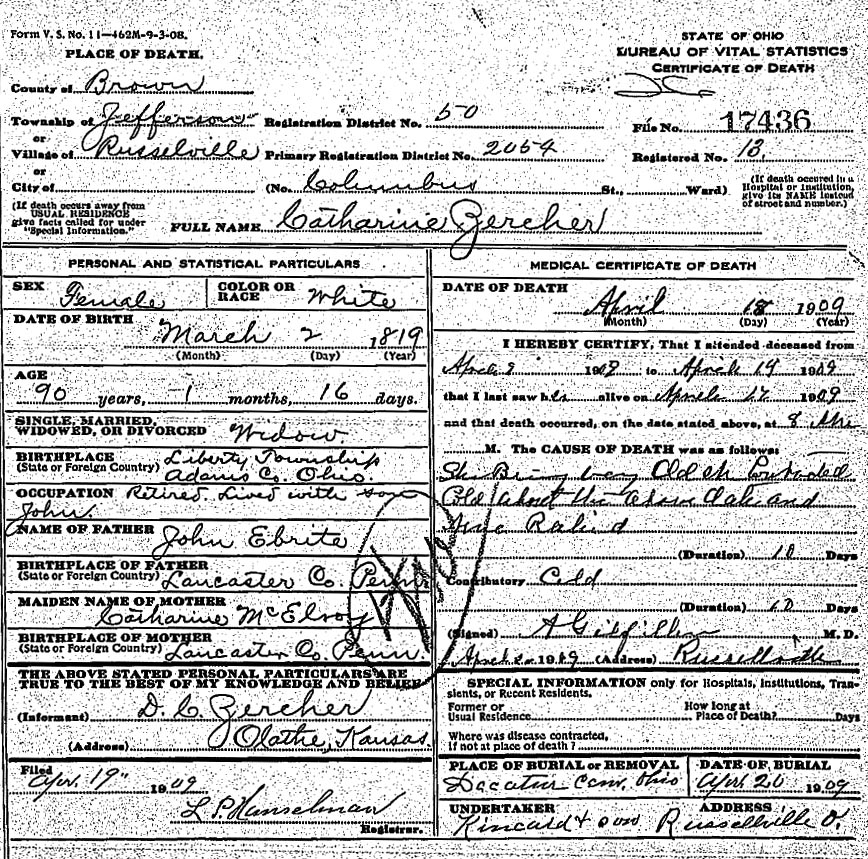 Form V. S. No. 11—462M-9-3-08.
PLACE OF DEATH.
STATE OF OHIO
BUREAU OF VITAL STATISTICS
CERTIFICATE OF DEATH
County of Brown
Township of Jefferson Registration District No. 50 File No. 17436
or
Village of Russelville Primary Registration District No. 2054 Registered No. 13.
or
City of (No. Columbus St., Ward) (If death occured in a Hospital or Institution, give its NAME instead of street and number.)
(If death occurs away from USUAL RESIDENCE give facts called for under "Special Information.") FULL NAME Catharine Zercher
PERSONAL AND STATISTICAL PARTICULARS
SEX Female COLOR OR RACE White
DATE OF BIRTH
March 2 1819
(Month) (Day) (Year)
AGE
90 years, 1 months, 16 days.
SINGLE, MARRIED, WIDOWED, OR DIVORCED Widow
BIRTHPLACE (State or Foreign Country) Liberty Township Adams Co. Ohio.
OCCUPATION Retired. Lived with son John.
NAME OF FATHER John Ebrite
BIRTHPLACE OF FATHER (State or Foreign Country) Lancaster Co. Penn.
MAIDEN NAME OF MOTHER Catharine McElroy
BIRTHPLACE OF MOTHER (State or Foreign Country) Lancaster Co. Penn.
THE ABOVE STATED PERSONAL PARTICULARS ARE TRUE TO THE BEST OF MY KNOWLEDGE AND BELIEF
(Informant) D. C. Zercher
(Address) Olathe, Kansas.
Filed Apr. 19" 1909
L. P. Hanselman
Registrar.
MEDICAL CERTIFICATE OF DEATH
DATE OF DEATH
April 18 1909
(Month) (Day) (Year)
I HEREBY CERTIFY, That I attended deceased from
April 190 to April 1909
that I last saw her alive on April 17 1909
and that death occurred, on the date stated above, at 8
M. The CAUSE OF DEATH was as follows:
She Being very Old
Cold about the above date and
(Duration) 10 Days
Contributory Cold
(Duration) 10 Days
(Signed) A Gilfillen M. D.
April 1909 (Address) Russellville
SPECIAL INFORMATION only for Hospitals, Institutions, Transients, or Recent Residents.
Former or Usual Residence How long at Place of Death? Days
Where was disease contracted, If not at place of death?
PLACE OF BURIAL or REMOVAL DATE OF BURIAL
Decatur Cem. Ohio Apr. 20 1909
UNDERTAKER ADDRESS
Kincard & son Russellville O.